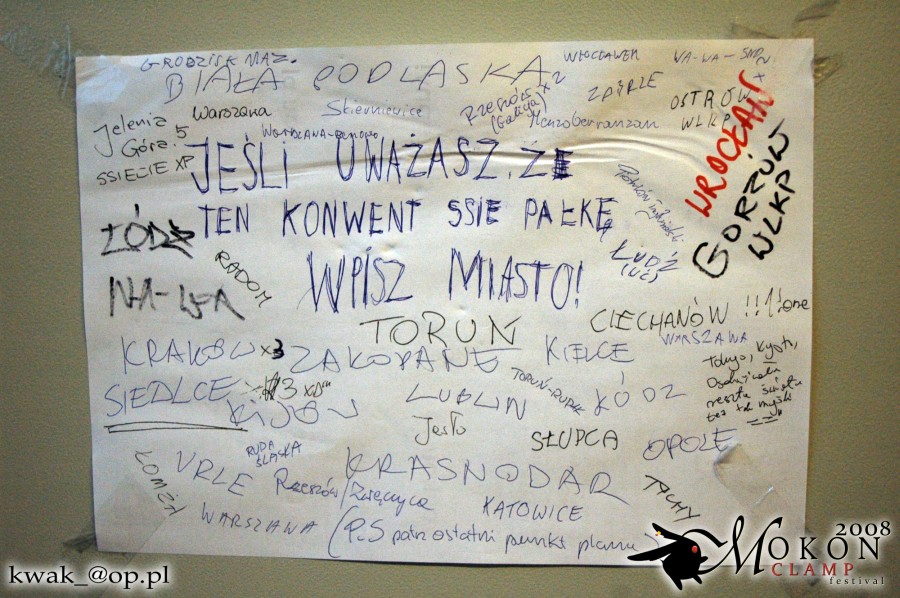 GRODZISK MAZ.
WŁOCŁAWEK
WA-WA-
BIAŁA PODLASKA
x2
ZGIERZ
Warszawa
Skierniewice
Rzeszów x2
(Galicja)
Menzoberranzan
OSTRÓW
WLKP
WROCŁAW
Jelenia
Góra. 5
SSIECIE XP
Warszawa-Bemowo
JEŚLI UWAŻASZ, ŻE
TEN KONWENT SSIE PAŁKĘ
WPISZ MIASTO!
GORZÓW
WLKP
ŁÓDŹ
ŁUDŹ
(UĆ)
RADOM
TORUŃ
CIECHANÓW !!!1!one
WARSZAWA
KRAKÓW x3
ZAKOPANE
KIELCE
Tokyo, Kyoto,
reszta świata
też tak myśli
SIEDLCE
x3 xD
KIJÓW
LUBLIN
ŁÓDŹ
Jasło
SŁUPCA
OPOLE
ŁOMŻA
URLE
RUDA
ŚLĄSKA
KRASNODAR
Rzeszów/Zwięczyca
KATOWICE
TYCHY
WARSZAWA
(PS patrz ostatni punkt planu
kwak_@op.pl
MOKON 2008
CLAMP
festival